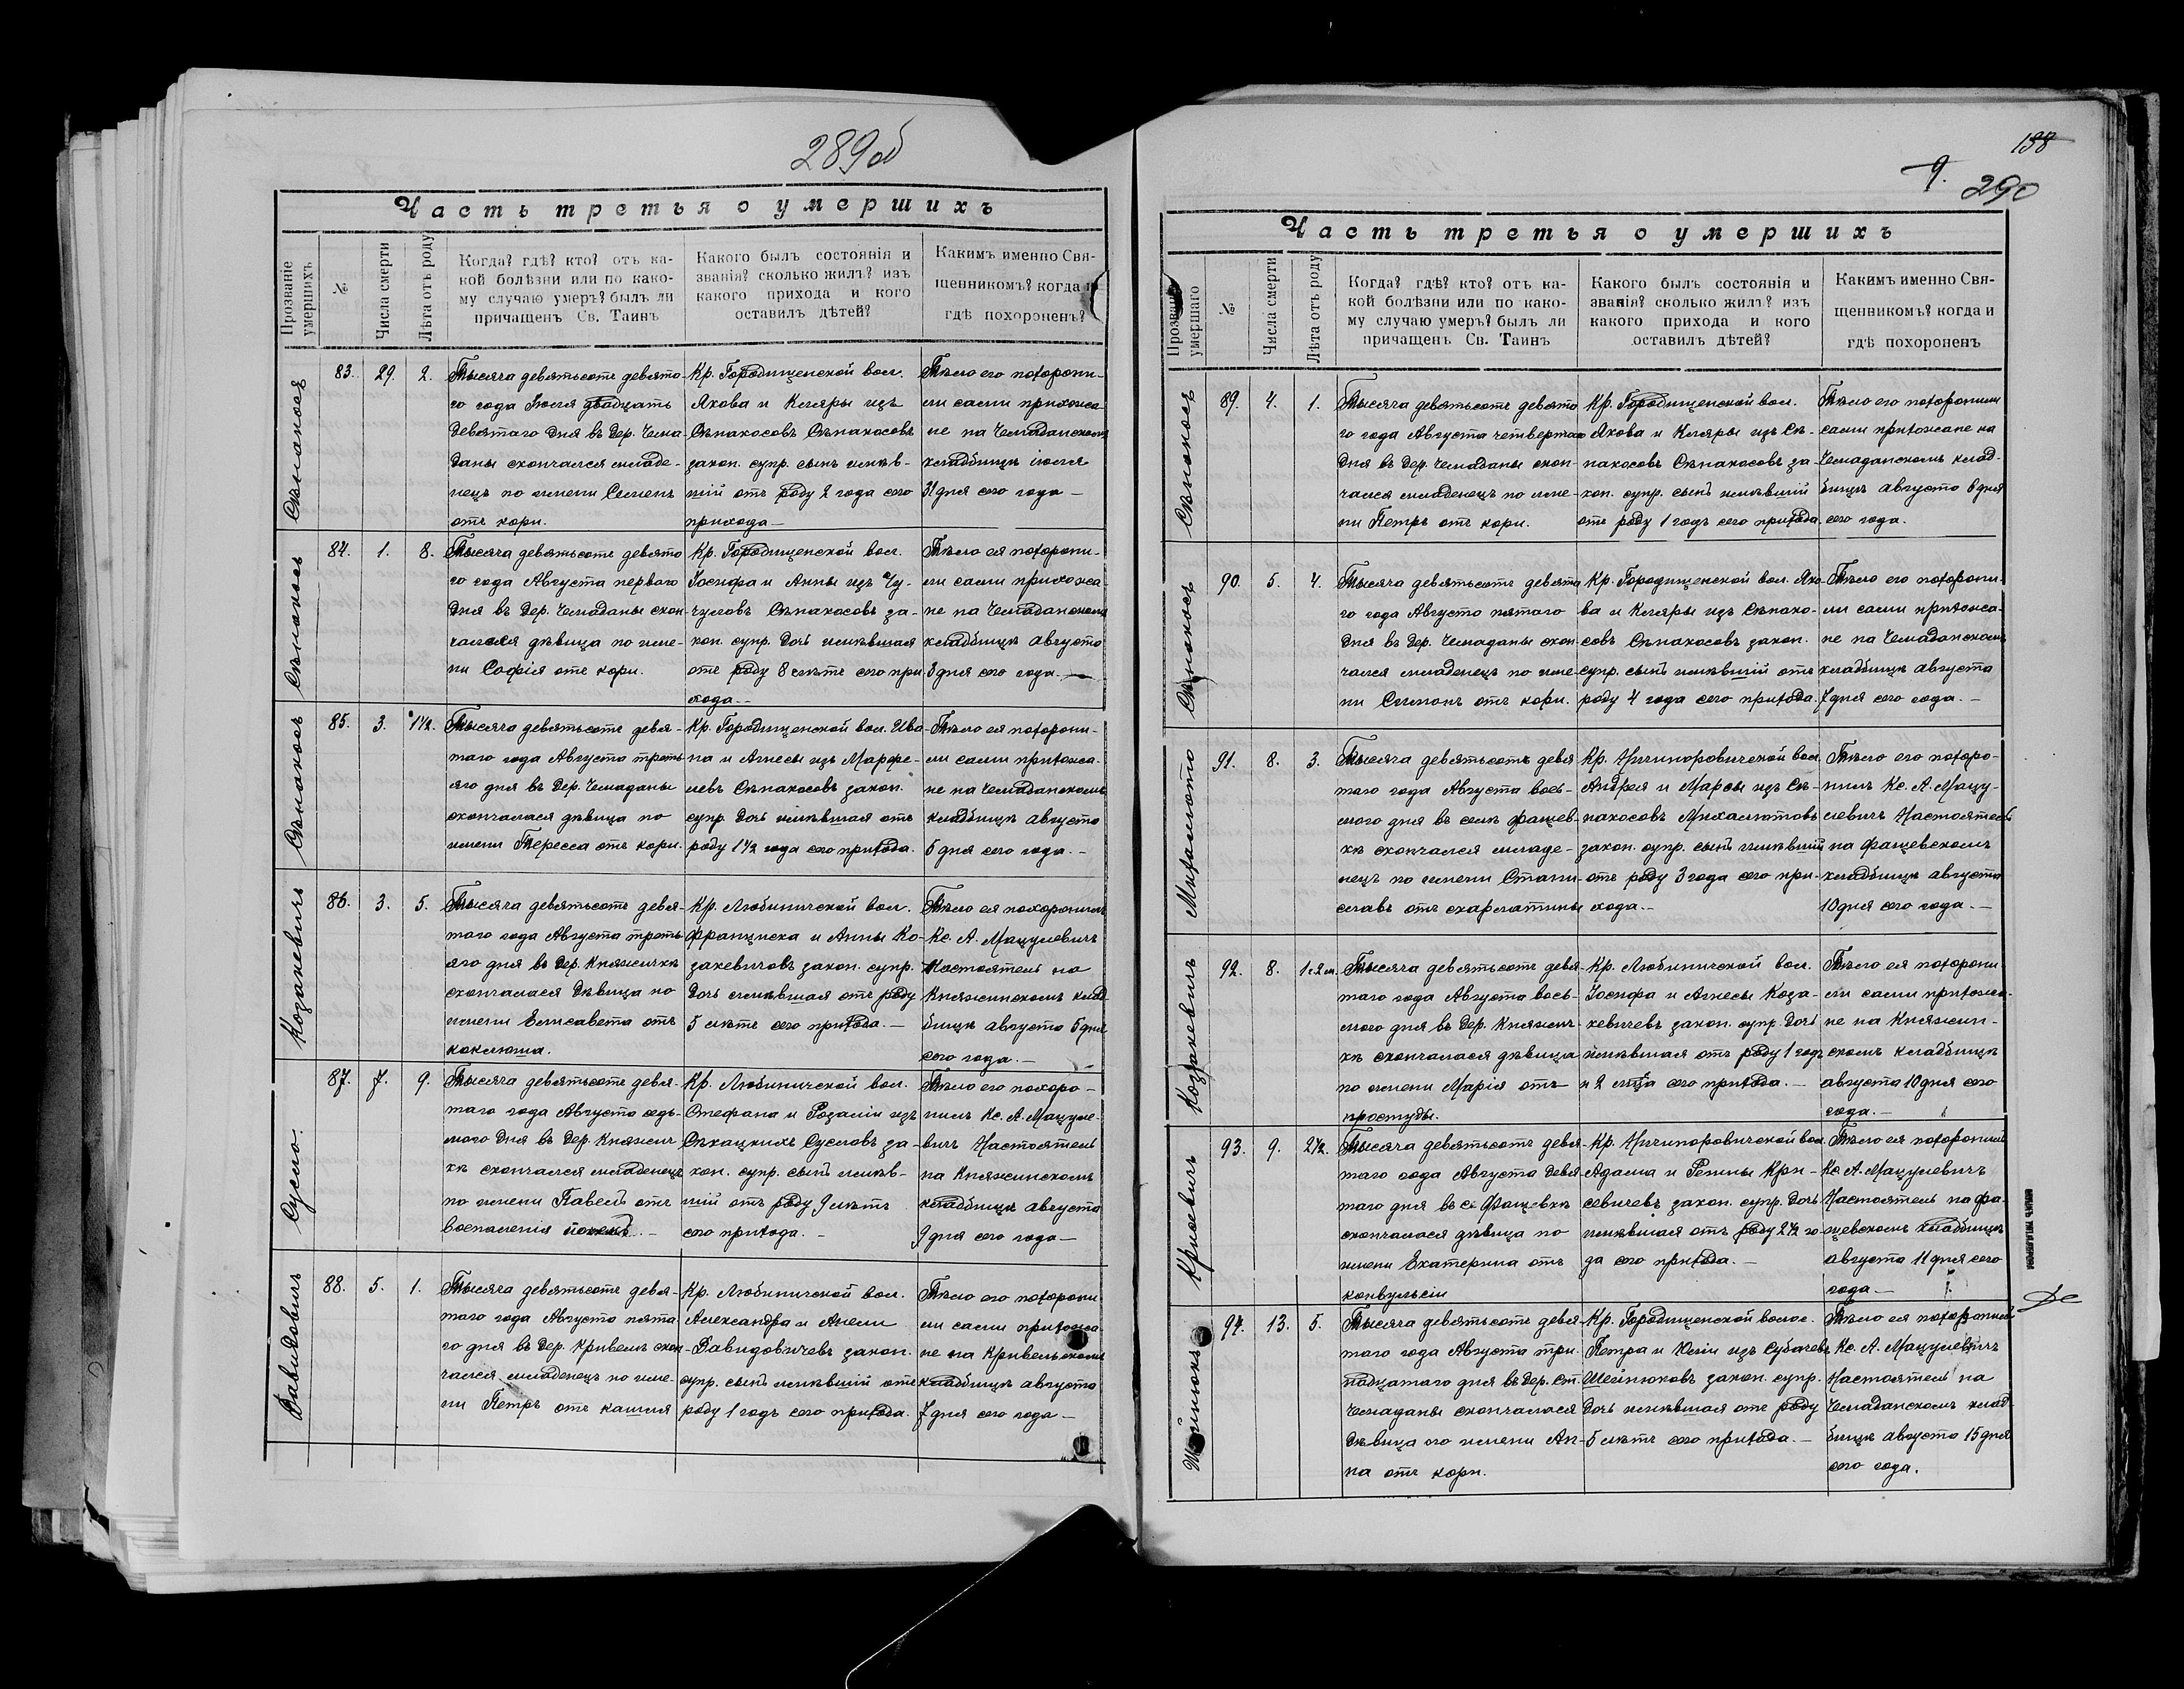 289об
Часть третья о умершихъ
Прозваніе умершихъ
№
Числа смерти
Лѣта отъ роду
Когда? гдѣ? кто? отъ ка-
кой болѣзни или по како-
му случаю умеръ? былъ ли
причащенъ Св. Таинъ
Какого былъ состоянія и
званія? сколько жилъ? изъ
какого прихода и кого
оставилъ дѣтей?
Какимъ именно Свя-
щенникомъ? когда и
гдѣ похороненъ?
Сѣнокосъ
83.
29.
2.
Тысяча девятьсотъ девято-
го года Іюля двадцать
девятаго дня въ дер. Чема-
даны скончался младе-
нецъ по имени Семенъ
отъ кори.
Кр. Городищенской вол.
Якова и Кляры изъ
Сѣнокосовъ Сѣнокосовъ
закон. супр. сынъ имѣв-
шій отъ роду 2 года сего
прихода —
Тѣло его похорони-
ли сами прихожа-
не на Чемаданскомъ
кладбищѣ іюля
31 дня сего года —
Сѣнокосъ
84.
1.
8.
Тысяча девятьсотъ девято
го года Августа перваго
дня въ дер. Чемаданы скон
чалася дѣвица по име-
ни Софія отъ кори.
Кр. Городищенской вол.
Іосифа и Анны изъ Чу-
чуловъ Сѣнокосовъ за-
кон. супр. дочь имѣвшая
отъ роду 8 лѣтъ сего при
хода. —
Тѣло ея похорони-
ли сами прихожа-
не на Чемаданскомъ
кладбищѣ августа
3 дня сего года. —
Сѣнокосъ
85.
3.
1½.
Тысяча девятьсотъ девя-
таго года Августа треть
яго дня въ дер. Чемаданы
скончалася дѣвица по
имени Тересса отъ кори.
Кр. Городищенской вол. Ива
на и Агнесы изъ Марфе-
левъ Сѣнокосовъ закон.
супр. дочь имѣвшая отъ
роду 1½ года сего прихода.
Тѣло ея похорони-
ли сами прихожа-
не на Чемаданскомъ
кладбищѣ августа
5 дня сего года. —
Козакевичъ
86.
3.
5.
Тысяча девятьсотъ девя-
таго года Августа треть
яго дня въ дер. Княжичкѣ
скончалася дѣвица по
имени Елисавета отъ
коклюша.
Кр. Любиничской вол.
Франциска и Анны Ко-
закевичовъ закон. супр.
дочь имѣвшая отъ роду
5 лѣтъ сего прихода. —
Тѣло ея похоронилъ
Кс. А. Мацулевичъ
Настоятель на
Княжинскомъ клад
бищѣ августа 5 дня
сего года. —
Сусло.
87.
7.
9.
Тысяча девятьсотъ девя-
таго года Августа седь-
мого дня въ дер. Княжич
кѣ скончался младенецъ
по имени Павелъ отъ
воспаленія почекъ. —
Кр. Любиничской вол.
Стефана и Розаліи изъ
Сѣкацкихъ Сусловъ за-
кон. супр. сынъ имѣв-
шій отъ роду 9 лѣтъ
сего прихода. —
Тѣло его похоро-
нилъ Кс. А. Мацуле-
вичъ Настоятель
на Княжинскомъ
кладбищѣ августа
9 дня сего года —
Давидовичъ
88.
5.
1.
Тысяча девятьсотъ девя-
таго года Августа пята
го дня въ дер. Кривель скон
чался младенецъ по име-
ни Петръ отъ кашля
Кр. Любиничской вол.
Александра и Анели
Давидовичевъ закон.
супр. сынъ имѣвшій отъ
роду 1 годъ сего прихода.
Тѣло его похорони
ли сами прихожа-
не на Кривельскомъ
кладбищѣ августа
7 дня сего года —
138
9.
290
Часть третья о умершихъ
Прозваніе умершаго
№
Числа смерти
Лѣта отъ роду
Когда? гдѣ? кто? отъ ка-
кой болѣзни или по како-
му случаю умеръ? былъ ли
причащенъ Св. Таинъ
Какого былъ состоянія и
званія? сколько жилъ? изъ
какого прихода и кого
оставилъ дѣтей?
Какимъ именно Свя-
щенникомъ? когда и
гдѣ похороненъ
Сѣнокосъ
89.
4.
1.
Тысяча девятьсотъ девято
го года Августа четвертаго
дня въ дер. Чемаданы скон-
чался младенецъ по име-
ни Петръ отъ кори.
Кр. Городищенской вол.
Якова и Кляры изъ Сѣ-
нокосовъ Сѣнокосовъ за
кон. супр. сынъ имѣвшій
отъ роду 1 годъ сего прихода.
Тѣло его похоронили
сами прихожане на
Чемаданскомъ клад-
бищѣ августа 6 дня
сего года.
Сѣнокосъ
90.
5.
4.
Тысяча девятьсотъ девято
го года Августа пятаго
дня въ дер. Чемаданы скон-
чался младенецъ по име-
ни Симонъ отъ кори.
Кр. Городищенской вол. Яко-
ва и Кляры изъ Сѣноко-
совъ Сѣнокосовъ закон.
супр. сынъ имѣвшій отъ
роду 4 года сего прихода.
Тѣло его похорони-
ли сами прихожа-
не на Чемаданскомъ
кладбищѣ августа
7 дня сего года. —
Михалюто
91.
8.
3.
Тысяча девятьсотъ девя
таго года Августа вось-
мого дня въ селѣ Фащев-
кѣ скончался младе-
нецъ по имени Стани-
славъ отъ скарлатины
Кр. Ничипоровичской вол.
Андрея и Марсы изъ Сѣ-
нокосовъ Михалютовъ
закон. супр. сынъ имѣвшій
отъ роду 3 года сего при-
хода. —
Тѣло его похоро-
нилъ Кс. А. Мацу-
левичъ Настоятель
на Фащевскомъ
кладбищѣ августа
10 дня сего года. —
Козакевичъ
92.
8.
1 г. 2 м.
Тысяча девятьсотъ девя
таго года Августа вось-
мого дня въ дер. Княжич-
кѣ скончалася дѣвица
по имени Марія отъ
простуды.
Кр. Любиничской вол.
Іосифа и Агнесы Коза-
кевичевъ закон. супр. дочь
имѣвшая отъ роду 1 годъ
и 2 мѣца сего прихода. —
Тѣло ея похорони
ли сами прихожа-
не на Княжин-
скомъ кладбищѣ
августа 10 дня сего
года. —
Крисевичъ
93.
9.
2½.
Тысяча девятьсотъ девя-
таго года Августа девя
таго дня въ с. Фащевкѣ
скончалася дѣвица по
имени Екатерина отъ
конвульсіи
Кр. Ничипоровичской вол.
Адама и Регины Кри-
севичевъ закон. супр. дочь
имѣвшая отъ роду 2½ го-
да сего прихода. —
Тѣло ея похоронилъ
Кс. А. Мацулевичъ
Настоятель на Фа-
щевскомъ кладбищѣ
августа 11 дня сего
года —
94.
13.
5.
Тысяча девятьсотъ девя
таго года Августа три-
надцатаго дня въ дер. Ст.
Чемаданы скончалася
дѣвица по имени Ан-
на отъ кори.
Кр. Городищенской волос.
Петра и Юліи изъ Субачевъ
Шейнюковъ закон. супр.
дочь имѣвшая отъ роду
5 лѣтъ сего прихода. —
Тѣло ея похоронилъ
Кс. А. Мацулевичъ
Настоятель на
Чемаданскомъ клад
бищѣ августа 15 дня
сего года.